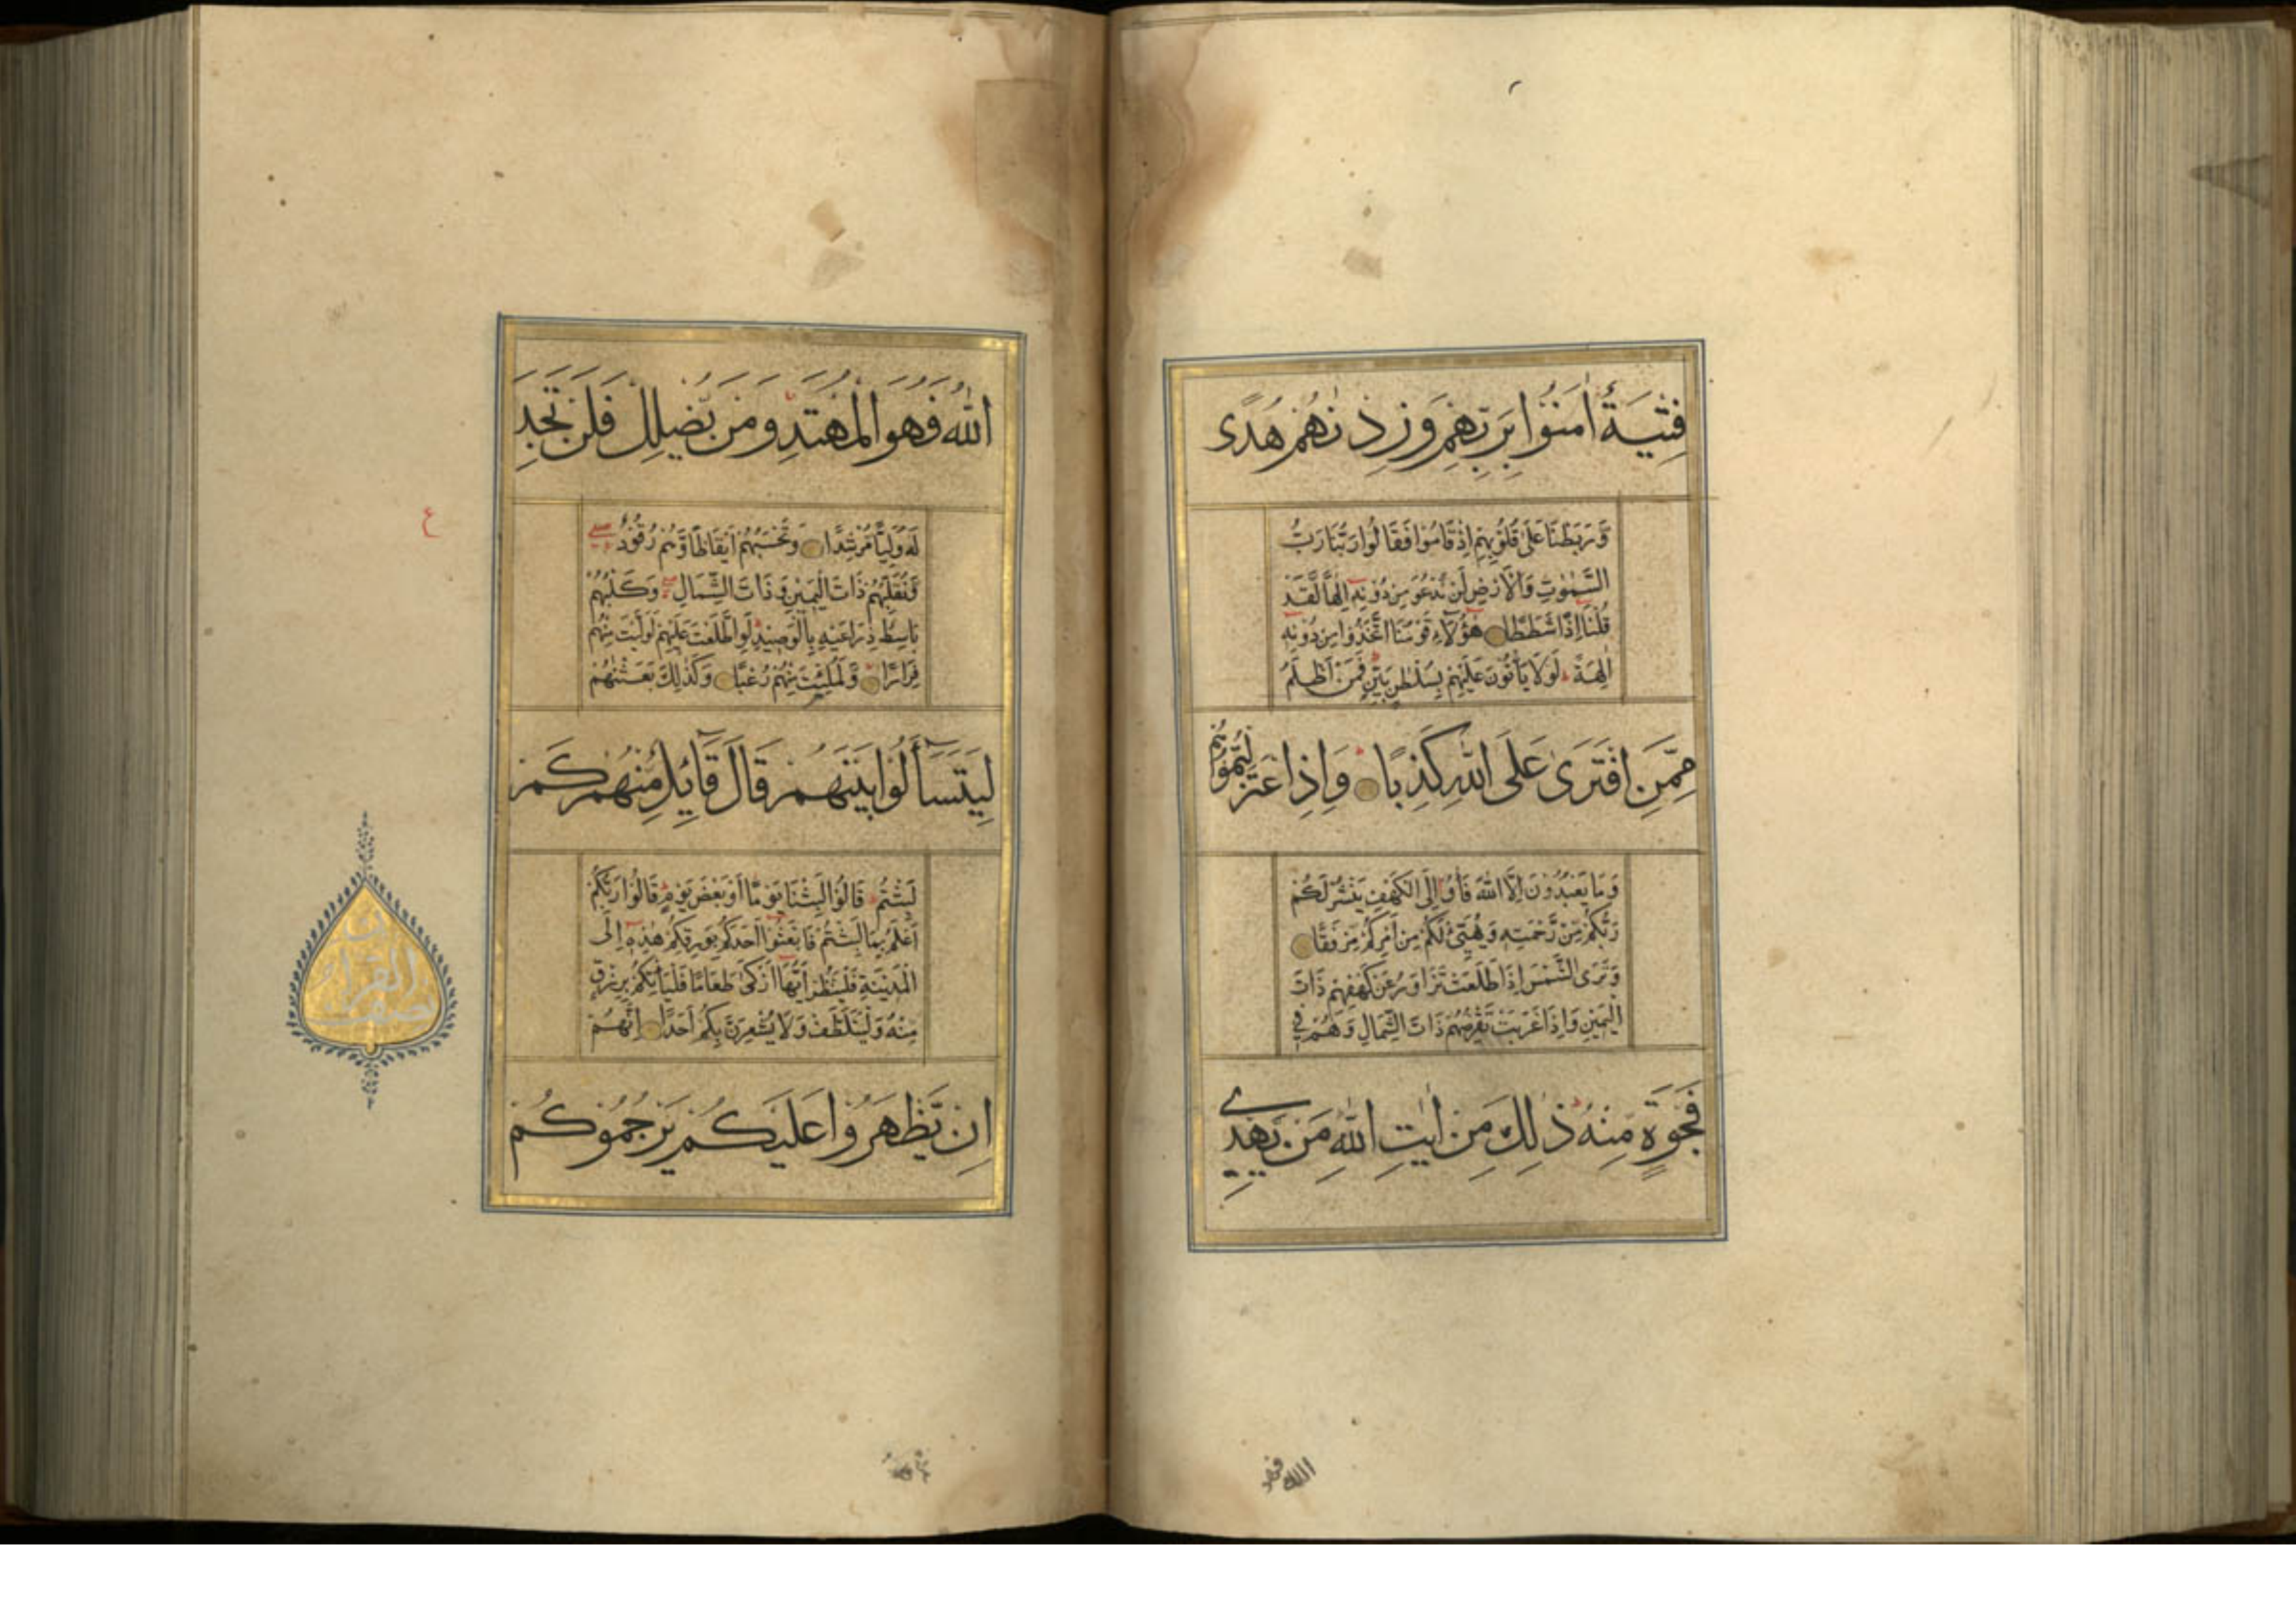 فِتْيَةٌ اٰمَنُوْا بِرَبِّهِمْ وَزِدْنٰهُمْ هُدًى
وَّرَبَطْنَا عَلٰى قُلُوْبِهِمْ اِذْ قَامُوْا فَقَالُوْا رَبُّنَا رَبُّ
السَّمٰوٰتِ وَالْاَرْضِ لَنْ نَّدْعُوَ مِنْ دُوْنِهٖٓ اِلٰهًا لَّقَدْ
قُلْنَآ اِذًا شَطَطًا هٰٓؤُلَآءِ قَوْمُنَا اتَّخَذُوْا مِنْ دُوْنِهٖٓ
اٰلِهَةً ط لَوْلَا يَاْتُوْنَ عَلَيْهِمْ بِسُلْطٰنٍ بَيِّنٍ ط فَمَنْ اَظْلَمُ
مِمَّنِ افْتَرٰى عَلَى اللّٰهِ كَذِبًا ط وَاِذِ اعْتَزَلْتُمُوْهُمْ
وَمَا يَعْبُدُوْنَ اِلَّا اللّٰهَ فَاْوٗٓا اِلَى الْكَهْفِ يَنْشُرْ لَكُمْ
رَبُّكُمْ مِّنْ رَّحْمَتِهٖ وَيُهَيِّئْ لَكُمْ مِّنْ اَمْرِكُمْ مِّرْفَقًا
وَتَرَى الشَّمْسَ اِذَا طَلَعَتْ تَّزَاوَرُ عَنْ كَهْفِهِمْ ذَاتَ
الْيَمِيْنِ وَاِذَا غَرَبَتْ تَّقْرِضُهُمْ ذَاتَ الشِّمَالِ وَهُمْ فِيْ
فَجْوَةٍ مِّنْهُ ط ذٰلِكَ مِنْ اٰيٰتِ اللّٰهِ مَنْ يَّهْدِي
الله فهو
اللّٰهُ فَهُوَ الْمُهْتَدِ وَمَنْ يُّضْلِلْ فَلَنْ تَجِدَ
لَهٗ وَلِيًّا مُّرْشِدًا وَتَحْسَبُهُمْ اَيْقَاظًا وَّهُمْ رُقُوْدٌ
وَّنُقَلِّبُهُمْ ذَاتَ الْيَمِيْنِ وَذَاتَ الشِّمَالِ وَكَلْبُهُمْ
بَاسِطٌ ذِرَاعَيْهِ بِالْوَصِيْدِ ط لَوِ اطَّلَعْتَ عَلَيْهِمْ لَوَلَّيْتَ مِنْهُمْ
فِرَارًا وَّلَمُلِئْتَ مِنْهُمْ رُعْبًا وَكَذٰلِكَ بَعَثْنٰهُمْ
لِيَتَسَآءَلُوْا بَيْنَهُمْ قَالَ قَآئِلٌ مِّنْهُمْ كَمْ
لَبِثْتُمْ ط قَالُوْا لَبِثْنَا يَوْمًا اَوْ بَعْضَ يَوْمٍ ط قَالُوْا رَبُّكُمْ
اَعْلَمُ بِمَا لَبِثْتُمْ فَابْعَثُوْٓا اَحَدَكُمْ بِوَرِقِكُمْ هٰذِهٖٓ اِلَى
الْمَدِيْنَةِ فَلْيَنْظُرْ اَيُّهَآ اَزْكٰى طَعَامًا فَلْيَاْتِكُمْ بِرِزْقٍ
مِّنْهُ وَلْيَتَلَطَّفْ وَلَا يُشْعِرَنَّ بِكُمْ اَحَدًا اِنَّهُمْ
اِنْ يَّظْهَرُوْا عَلَيْكُمْ يَرْجُمُوْكُمْ
ع
نصف
القرآن